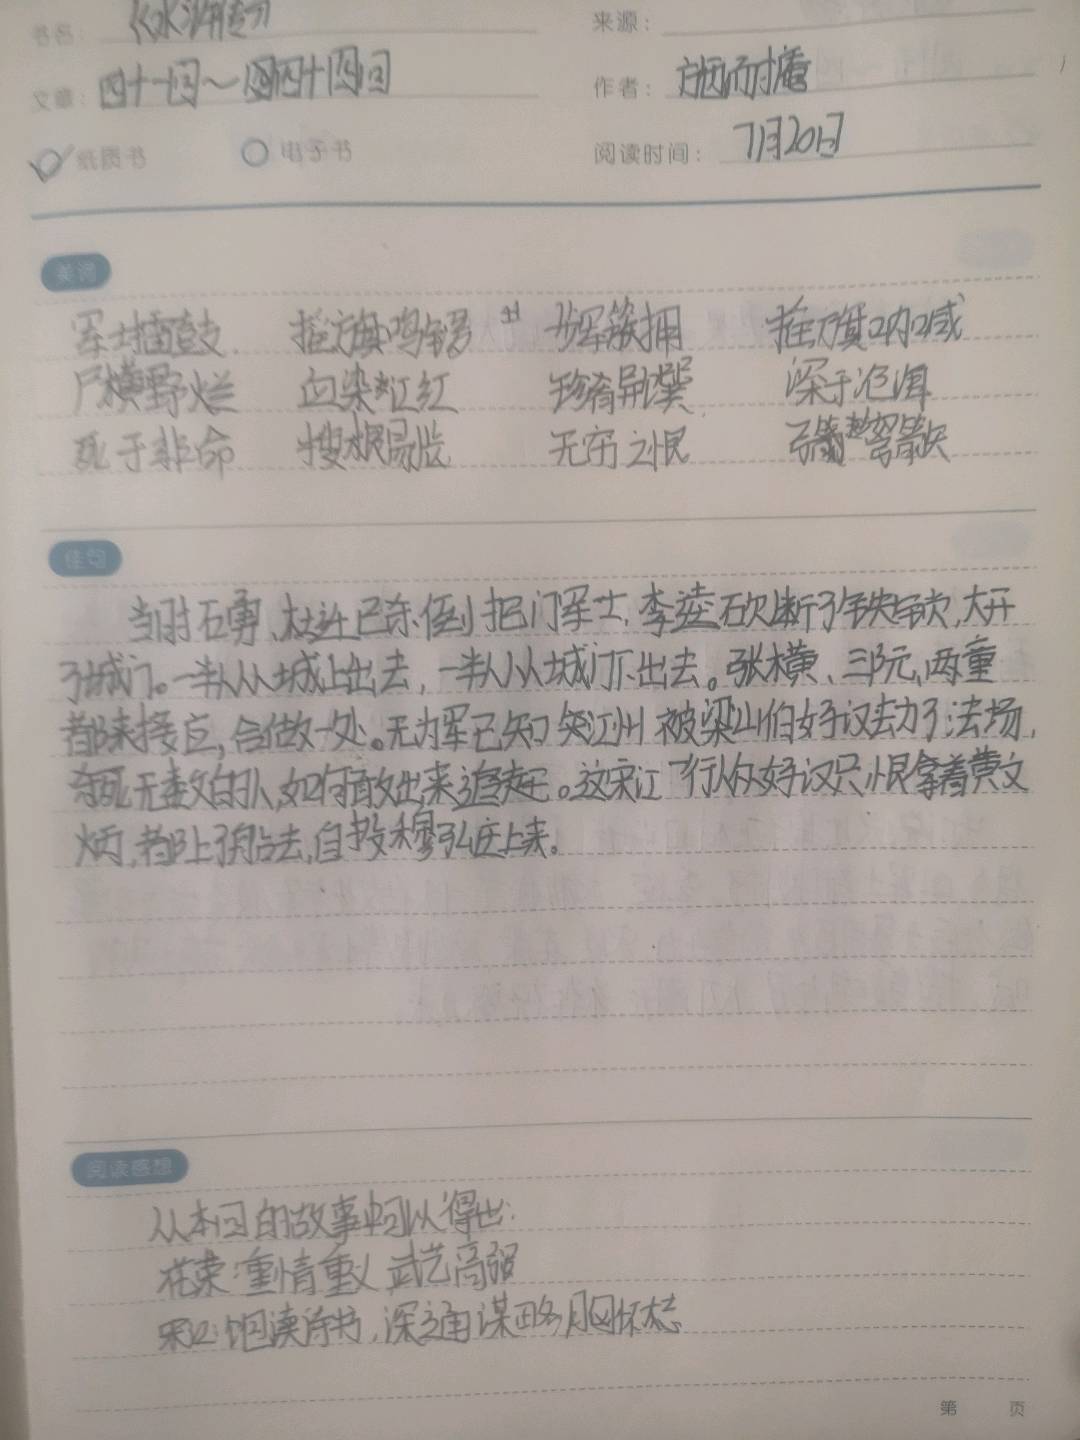 书名： 《水浒传》 来源：
文章： 四十一回～四十四回 作者： 施耐庵
纸质书 电子书 阅读时间： 7月20日
美词
军士擂鼓 摇旗鸣锣 簇拥 摇旗呐喊
尸横野烂 血染江红 珍肴异馔 深于沧洱
死于非命 搜根剔齿 无穷之恨 弩箭
佳句
当时石勇、杜迁已杀倒把门军士,李逵砍断了铁锁,大开
了城门。一半人从城上出去,一半人从城门下出去。张横、三阮、两童
都来接应,合做一处。无为军已知江州被梁山伯好汉劫了法场,
杀死无数的人,如何敢出来追赶。这宋江一行众好汉只恨拿着黄文
炳,都上了船去,自投穆弘庄上来。
阅读感想
从本回的故事中可以得出:
花荣:重情重义 武艺高强
宋江:饱读诗书,深通谋略,胸怀大志
第 页